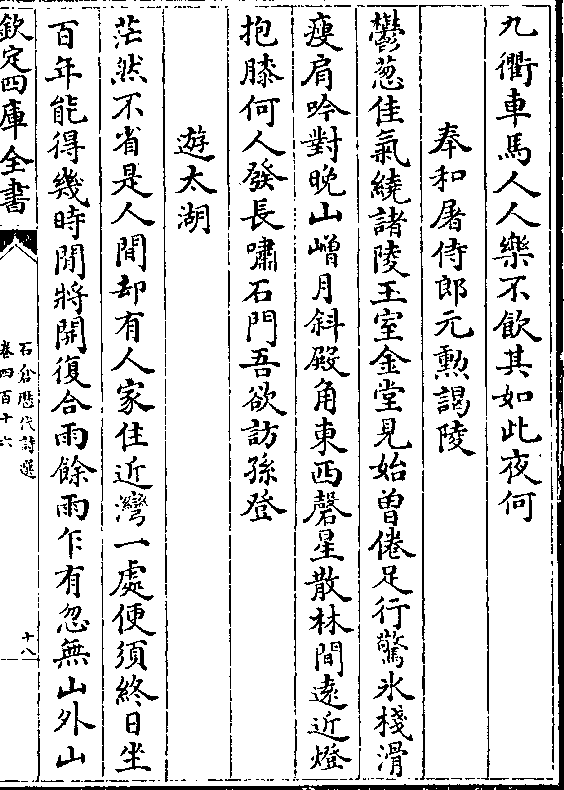 九衢車馬人人樂不飲其如此夜何
奉和屠侍郎元勲謁陵
鬱葱佳氣繞諸陵王室金堂見始曾倦足行驚氷棧滑
瘦肩吟對晚山嶒月斜殿角東西磬星散林間遠近燈
抱膝何人發長嘯石門吾欲訪孫登
遊太湖
茫然不省是人間却有人家住近灣一處便須終日坐
百年能得幾時閒將開復合雨餘雨乍有忽無山外山
欽定四庫全書
石倉歴代詩選
卷四百十六
十八